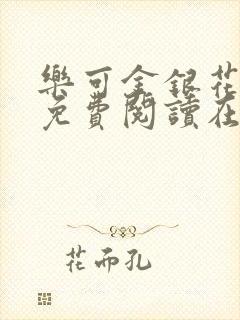 樂可金銀花
免費閱讀在
花而孔